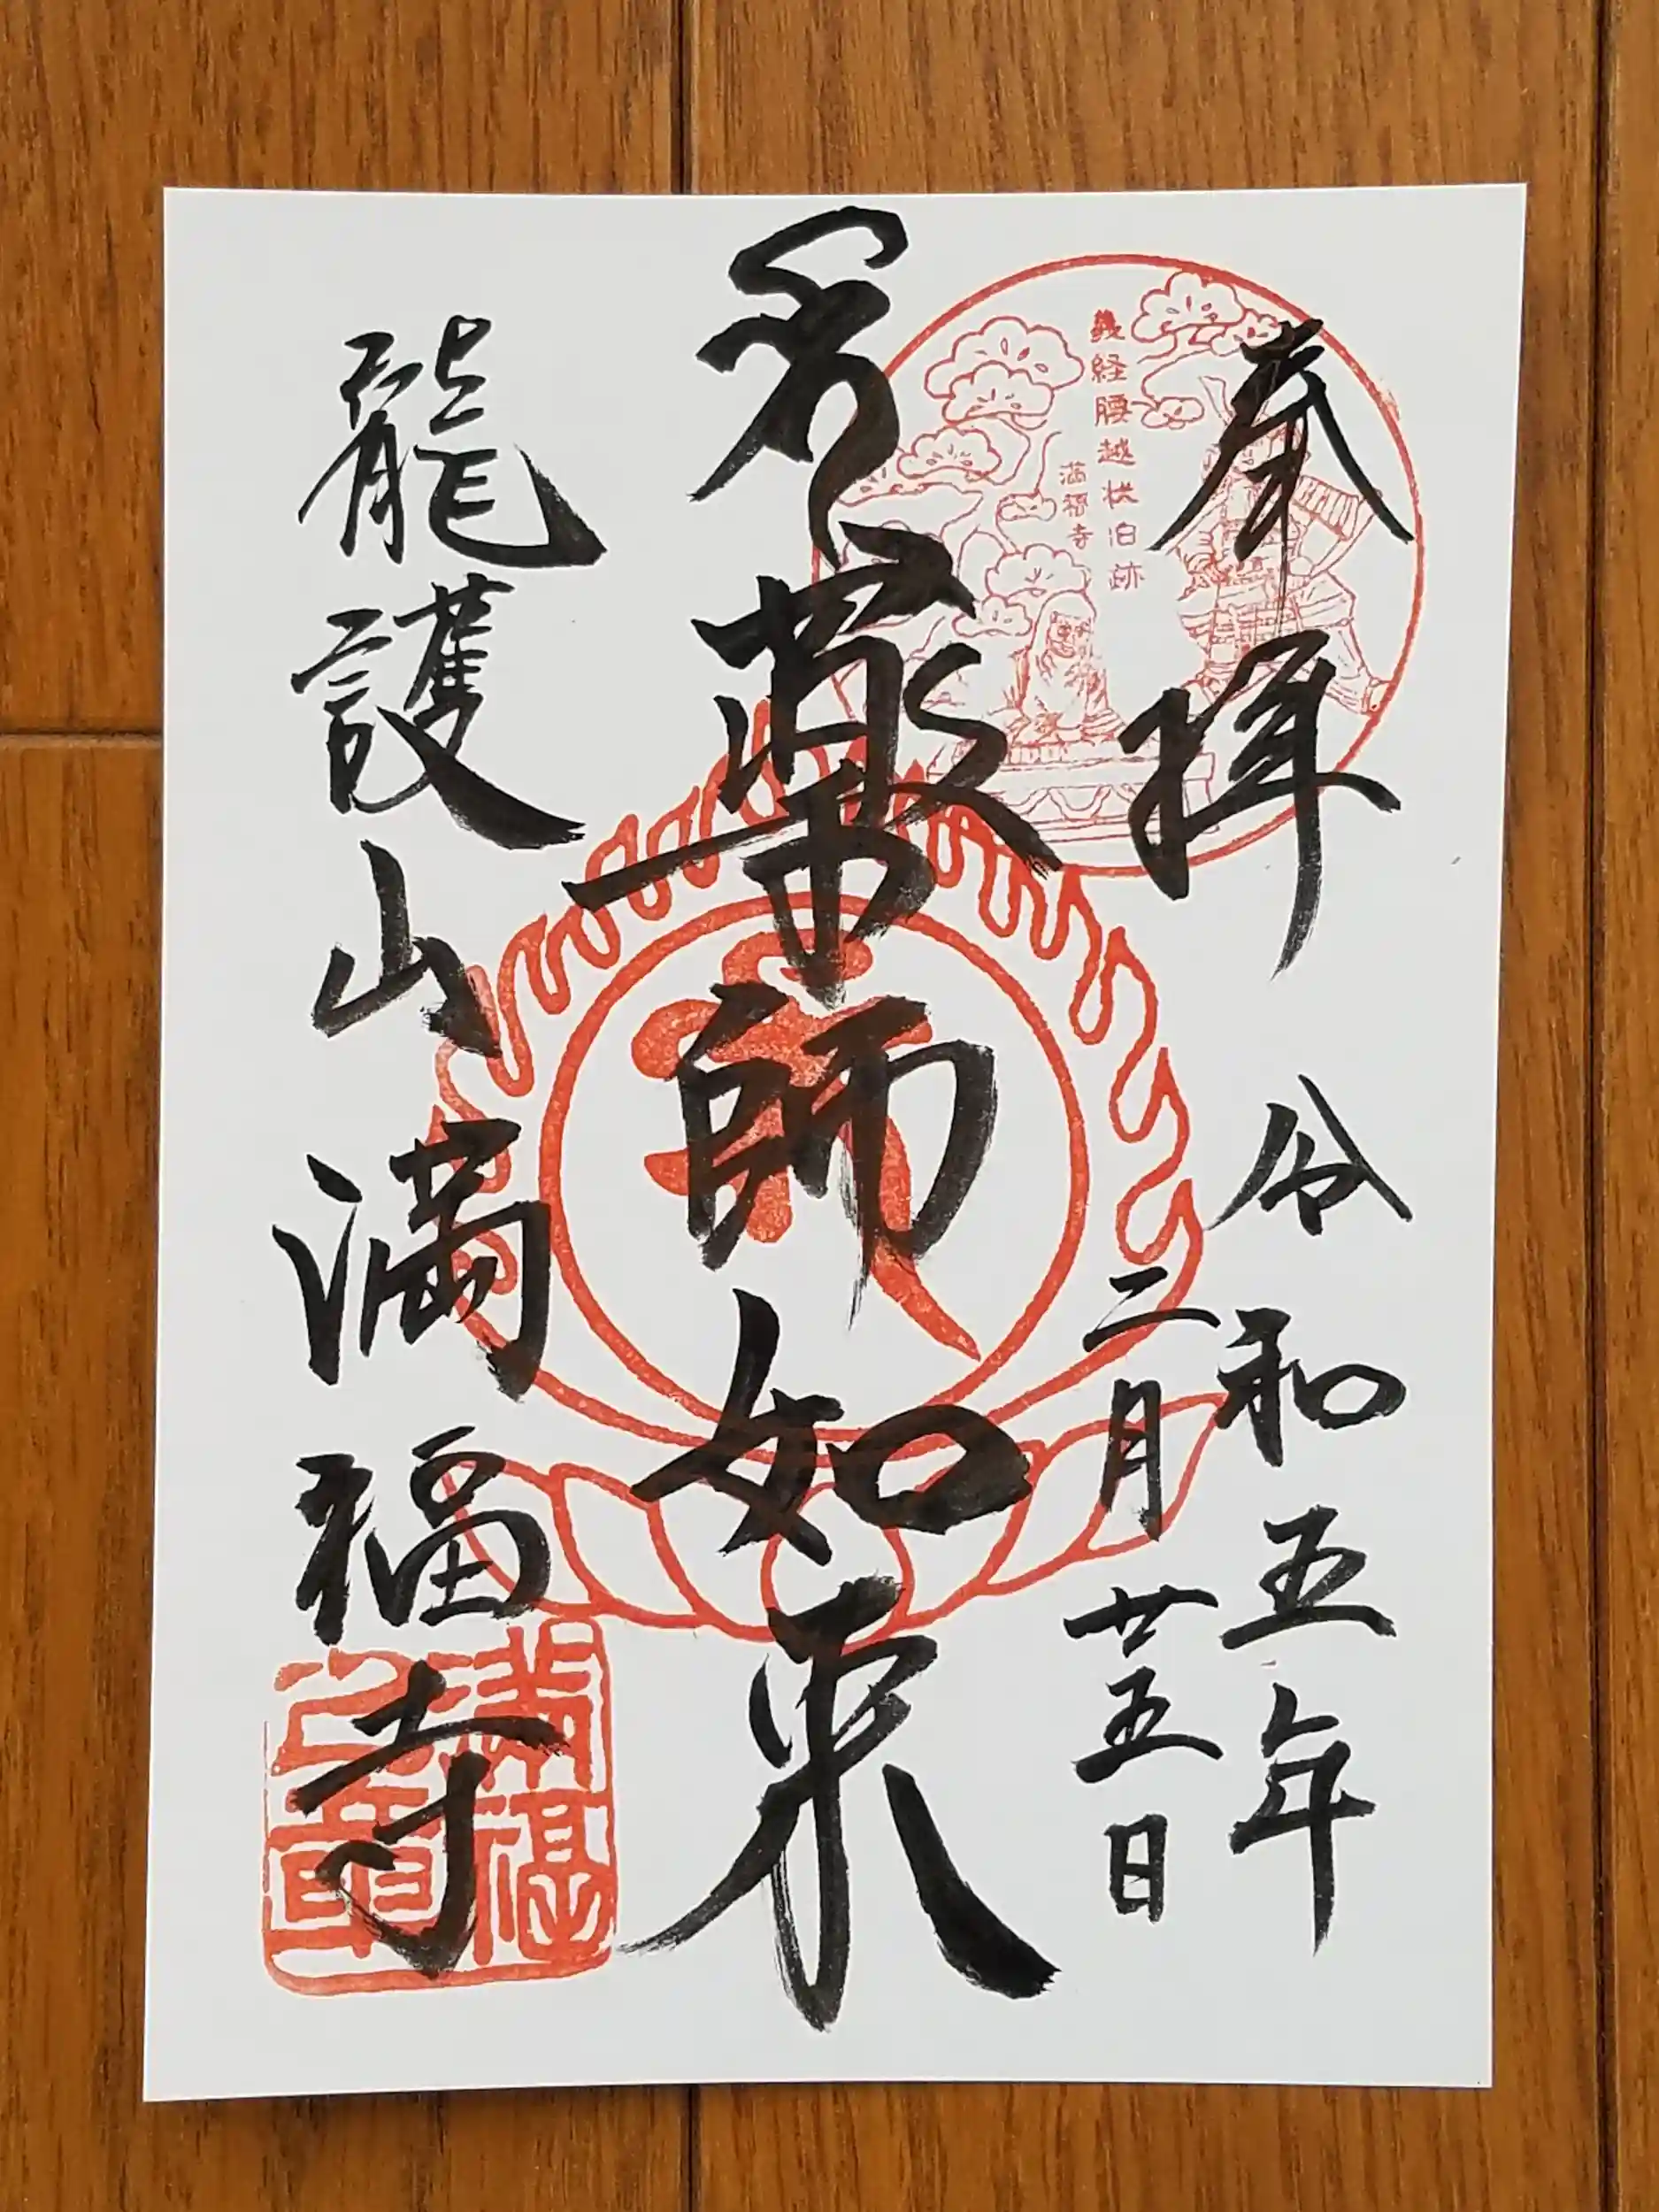 奉拝
令和五年
二月廿五日
義経腰越状旧跡
満福寺
薬師如来
龍護山満福寺